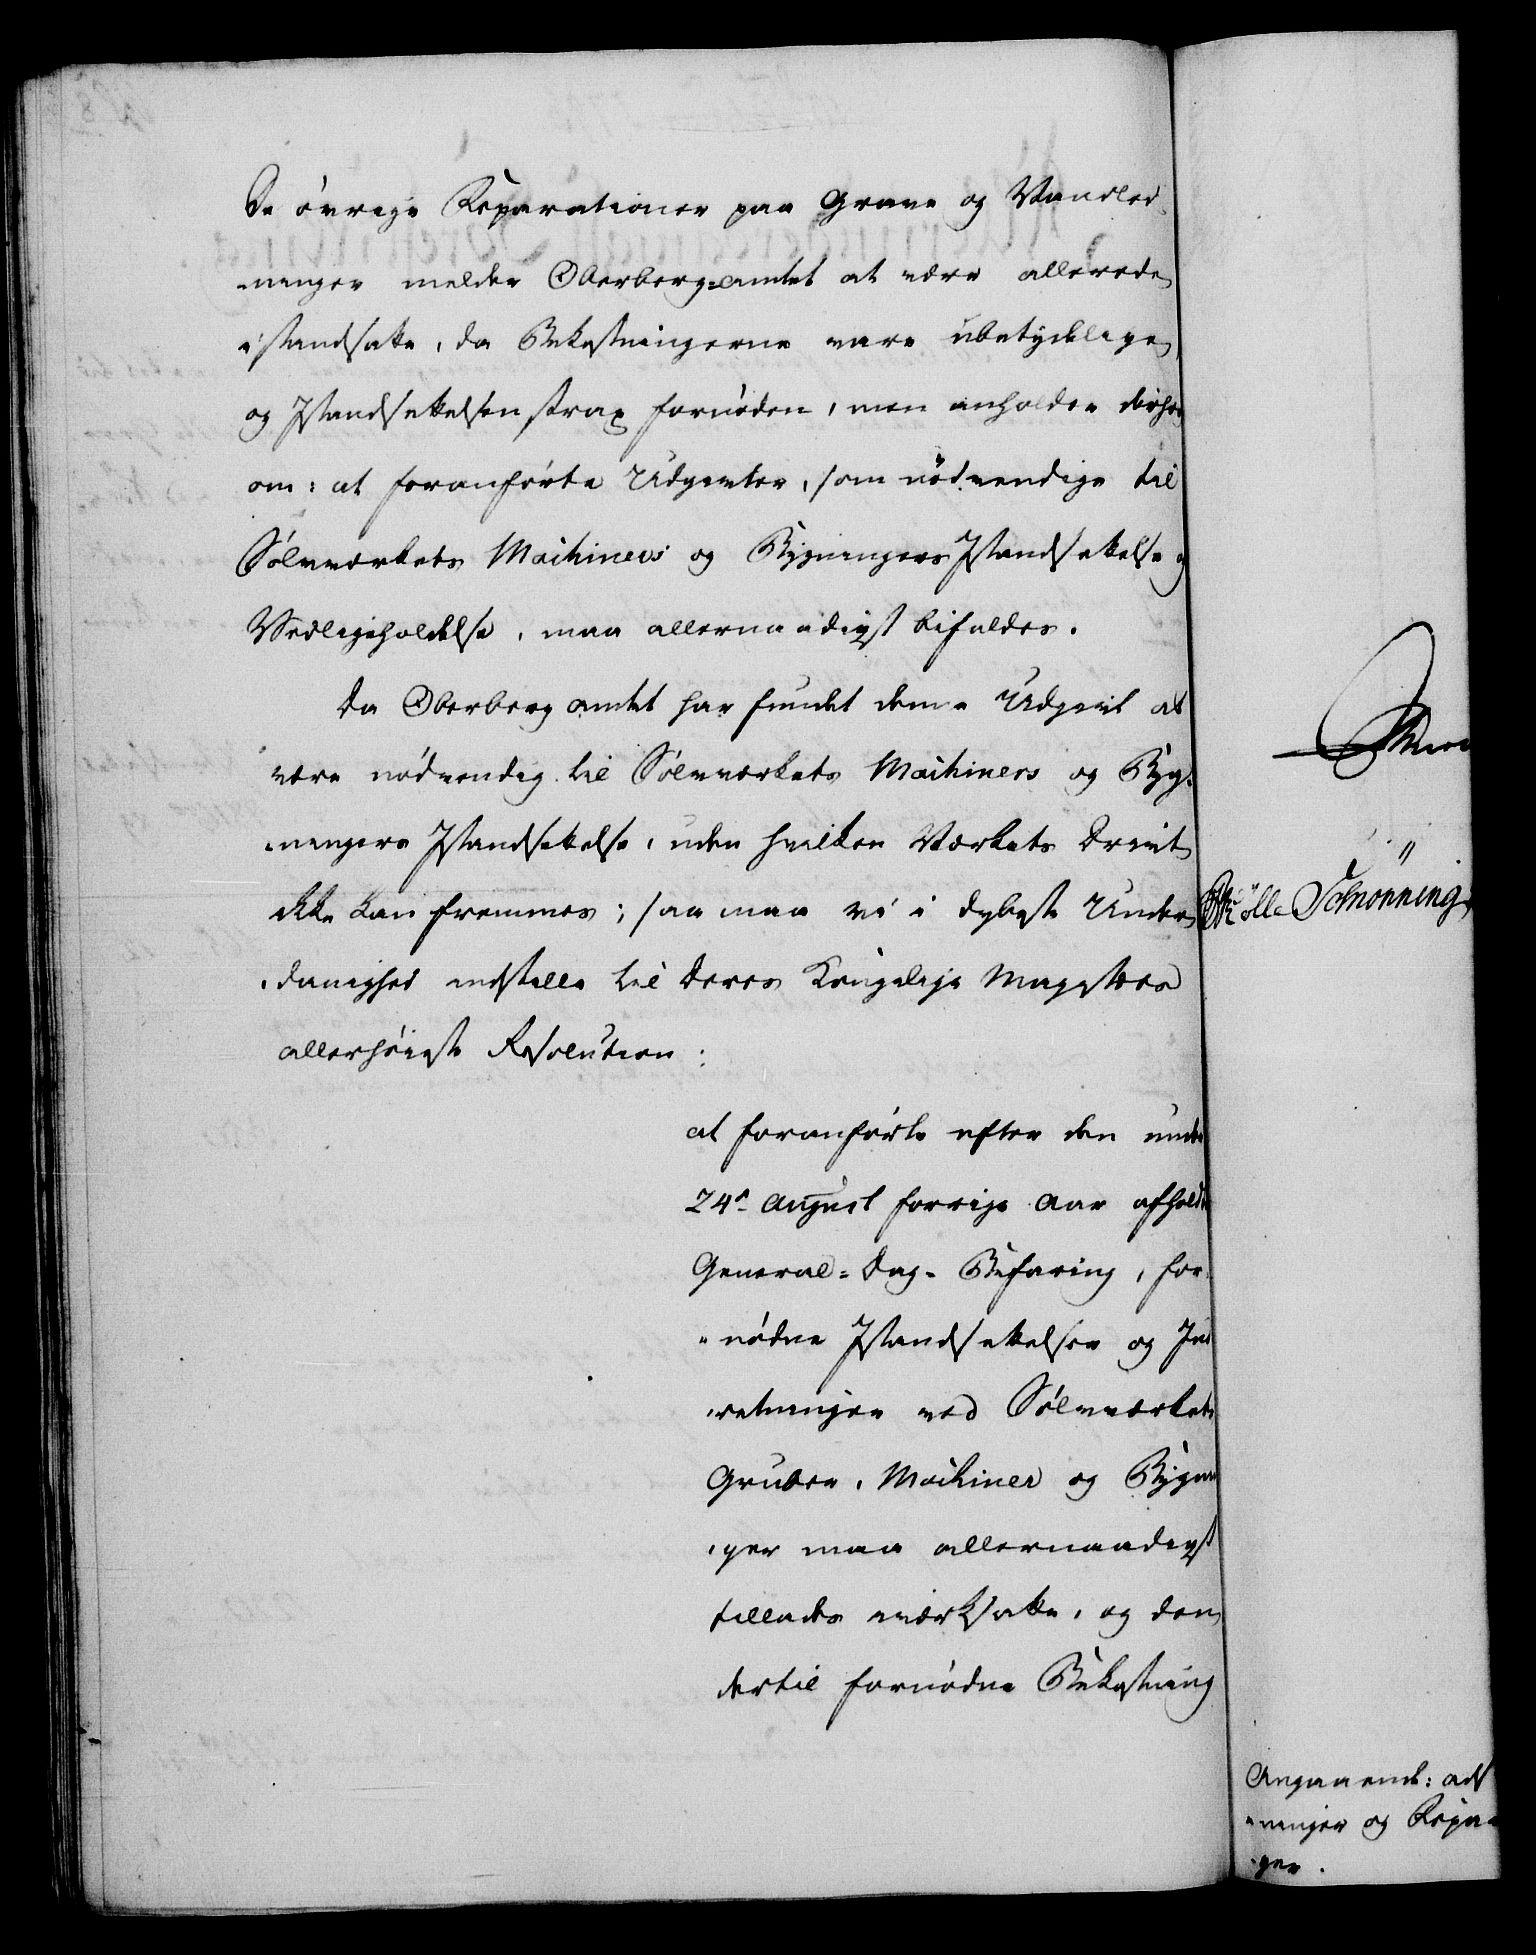 De øvrige Reparationer paa Grave og Vandled-
ninger melder Oberberg-amtet at være allerede
istandsatte, da Bekostningerne vare ubetydelige,
og Istandsættelsen strax fornøden, men anholder derhos
om: at foranførte Udgivter, som nødvendige til
Sølvværkets Machiners og Bygningers Istandsættelse og
Vedligeholdelse, maa allernaadigst bifaldes.
Da Oberbergamtet har fundet denne Udgivt at
være nødvendig til Sølvværkets Machiners og Byg-
ningers Istandsættelse, uden hvilken Værkets Drivt
ikke kan fremmes; saa maa vi i dybeste Under-
danighed indstille til Deres Kongelige Majestæts
allerhøieste Resolution:
at foranførte efter den under
24de August forrige Aar afholdte
General-Dag-Befaring, for-
nødne Istandsættelser og Ind-
retninger ved Sølvværkets
Gruber, Machiner og Bygnin-
ger maa allernaadigst
tillades iværksatte, og den
dertil fornødne Bekostning
Mölle Schiönning
Angaaende: ad
ninger og Repa
ger.